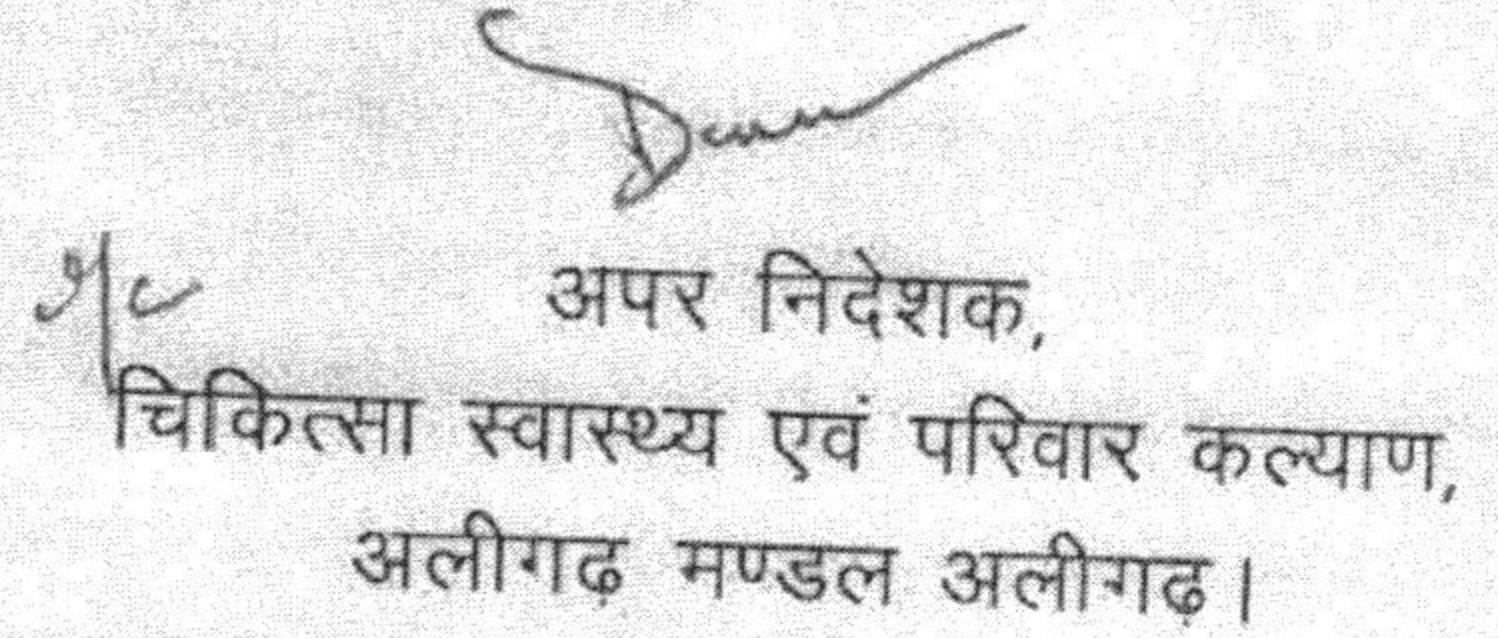 अपर निदेशक,
चिकित्सा स्वास्थ्य एवं परिवार कल्याण,
अलीगढ़ मण्डल अलीगढ़।